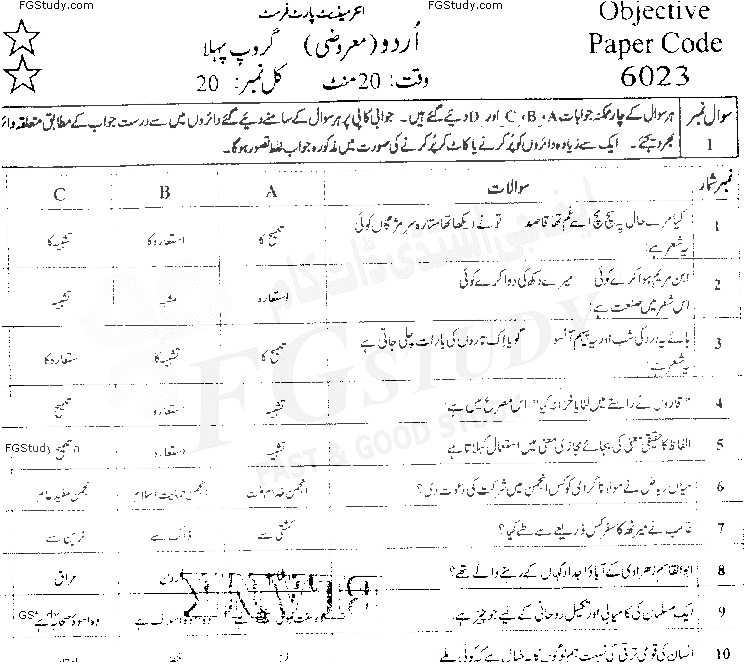 FGStudy.com
FGStudy.com
Objective
Paper Code
6023
انٹرمیڈیٹ پارٹ فرسٹ
اُردو (معروضی) گروپ پہلا
وقت: 20 منٹ کل نمبر: 20
سوال نمبر 1
ہر سوال کے چار ممکنہ جوابات A، B، C اور D دیئے گئے ہیں۔ جوابی کاپی پر ہر سوال کے سامنے دیئے گئے دائروں میں سے درست جواب کے مطابق متعلقہ دائر
بھر دیجئے۔ ایک سے زیادہ دائروں کو پُر کرنے یا کاٹ کر پُر کرنے کی صورت میں مذکورہ جواب غلط تصور ہوگا۔
نمبر شمار سوالات A B C
1 کیا مرے حال پہ سچ مچ اسے غم تھا قاصد تو نے دیکھا تھا ستارہ سرِ مژگاں کوئی
یہ شعر ہے: تلمیح کا استعارہ کا تشبیہ کا
2 ابن مریم ہوا کرے کوئی میرے دکھ کی دوا کرے کوئی
اس شعر میں صنعت ہے: استعارہ مشبہ تشبیہ
3 ہائے یہ درد کی شب اور یہ پیہم آنسو گویا اک تاروں کی بارات چلی جاتی ہے
یہ شعر ہے: تلمیح کا تشبیہ کا ستعارہ کا
4 "قاروں نے راستے میں لٹایا خزانہ کیا" اس مصرع میں ہے: تشبیہ استعارہ تلمیح
5 الفاظ کا حقیقی معنی کی بجائے مجازی معنی میں استعمال کہلاتا ہے: تشبیہ استعارہ تلمیح
FGStudy
6 میاں ریاض نے مولانا گرامی کو کس انجمن میں شرکت کی دعوت دی؟ انجمن حمایت اسلام
7 غالب نے میرٹھ کا سفر کس ذریعے سے طے کیا؟ کشتی سے ڈاک سے ٹرین سے
8 ابوالقاسم زھراوی کے آباؤ اجداد کہاں کے رہنے والے تھے؟ عراق
9 ایک مسلمان کی کامیابی اور تکمیل روحانی کے لیے جو چیز ہے:
10 انسان کی قومی ترقی کی نسبت ہم لوگوں کا یہ خیال ہے کہ کوئی ملے
FG STUDY
FAST & GOOD STUDY
ایف جی اسٹڈی ڈاٹ کام